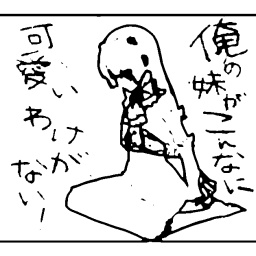 俺の妹がこんなに
可愛いわけがない!